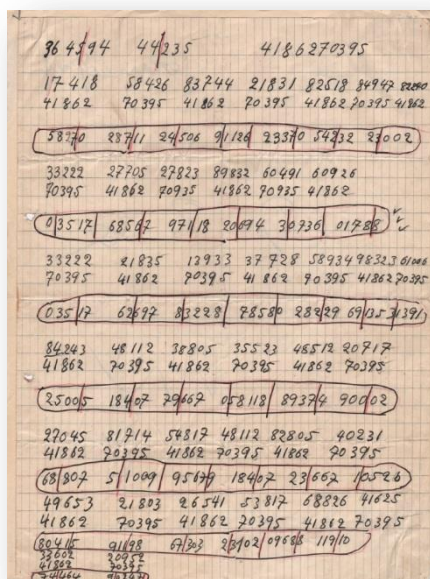 364594 44235 4186270395
17418 58426 83744 21831 82518 84947 82240
41862 70395 41862 70395 41862 70395 41862
58270 28711 24506 91126 23370 54232 23002
33222 27705 27823 89832 60491 60926
70395 41862 70935 41862 70935 41862
03517 68567 97118 20694 30736 01788
33222 21835 13933 37728 58934 98323 61006
70395 41862 70395 41862 70395 41862 70395
03517 62697 83228 78580 28229 69135 31391
84243 48112 38805 35523 48512 20717
41862 70395 41862 70395 41862 70395
25005 18407 79667 058118 89374 90002
27045 81714 54817 48112 82805 40231
41862 70395 41862 70395 41862 70395
68807 51009 95679 18407 23667 10526
49653 21803 26541 53817 68826 41625
41862 70395 41862 70395 41862 70395
80415 91198 67303 23102 09688 11910
33602 20952
41862 70395
74464